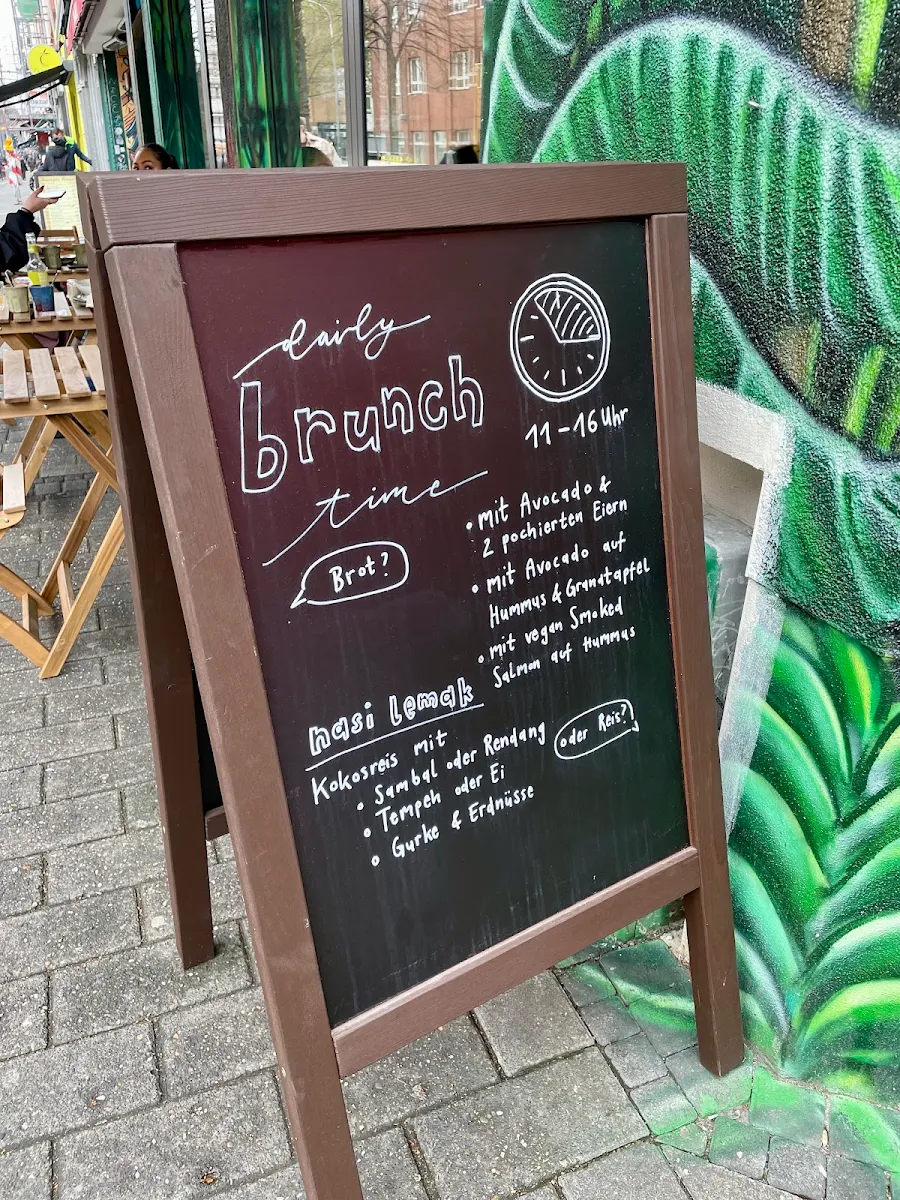 daily
brunch
time
11-16 Uhr
Brot?
• mit Avocado &
2 pochierten Eiern
• mit Avocado auf
Hummus & Granatapfel
• mit vegan Smoked
Salmon auf Hummus
oder Reis?
nasi lemak
Kokosreis mit
• Sambal oder Rendang
• Tempeh oder Ei
• Gurke & Erdnüsse